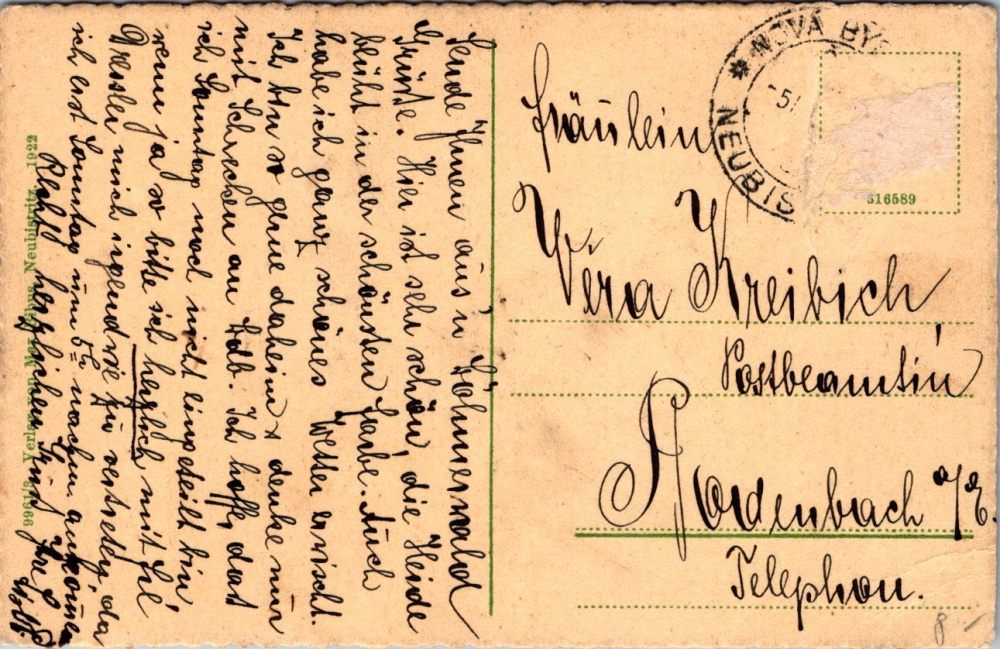 Sende Ihnen aus'n Böhmerwald
Grüße. Hier ist sehr schön, die Heide
blüht in der schönsten Farbe. Auch
habe ich ganz schönes Wetter erwischt.
Ich bin so gerne daheim & denke nur
mit Schrecken an Bdb. Ich hoffe, dass
ich Sonntag noch nicht eingeteilt bin,
wenn ja so bitte ich herzlich mit Frl
Dressler mich irgendwie zu vertreten, da
ich erst Sonntag um nachm. ankomme
Recht herzlichen Gruß Ihre
Verlag von Neubistritz, 1922
NOVA BY
NEUBIS
-5
516589
Fräulein
Vera Kreibich
Postbeamtin
Bodenbach a/E.
Telephon.
8 –